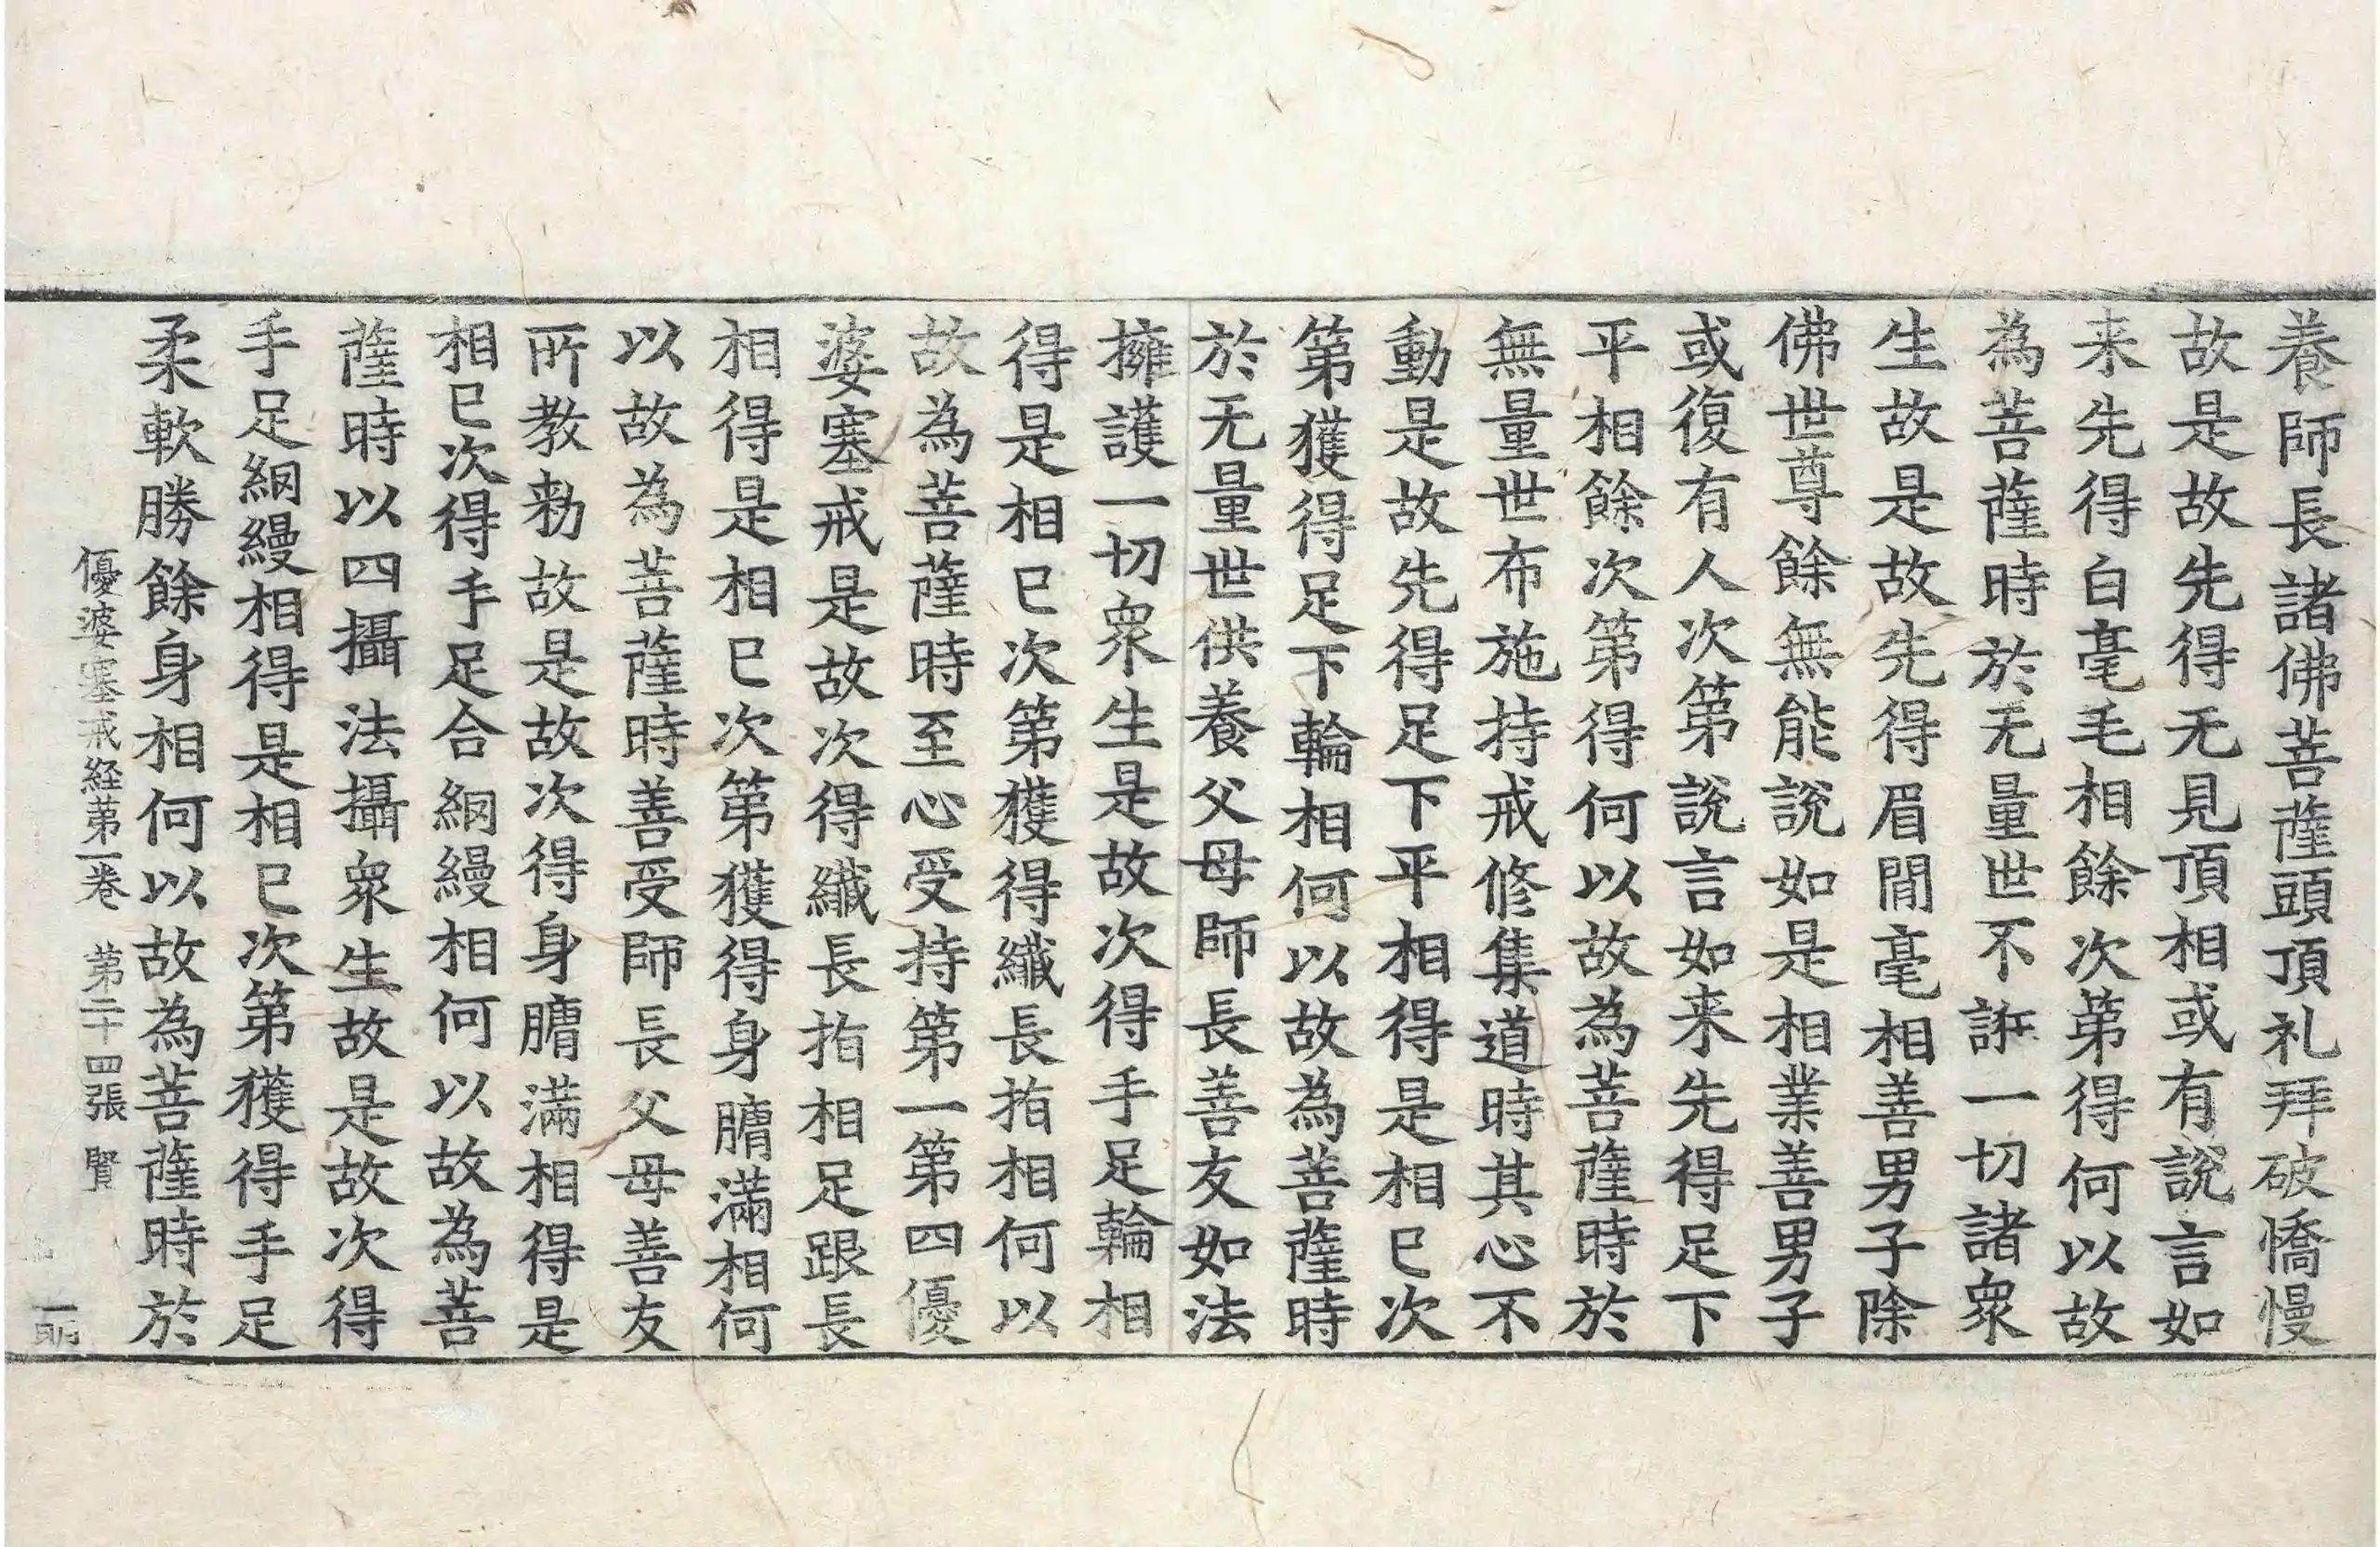 養師長諸佛菩薩頭頂礼拜破憍慢
故是故先得无見頂相或有說言如
来先得白毫毛相餘次第得何以故
為菩薩時於无量世不誑一切諸衆
生故是故先得眉間毫相善男子除
佛世尊餘無能說如是相業善男子
或復有人次第說言如来先得足下
平相餘次第得何以故為菩薩時於
無量世布施持戒修集道時其心不
動是故先得足下平相得是相已次
第獲得足下輪相何以故為菩薩時
於无量世供養父母師長善友如法
擁護一切衆生是故次得手足輪相
得是相已次第獲得纖長指相何以
故為菩薩時至心受持第一第四優
婆塞戒是故次得纖長指相足跟長
相得是相已次第獲得身𦟛滿相何
以故為菩薩時善受師長父母善友
所教勑故是故次得身𦟛滿相得是
相已次得手足合網縵相何以故為菩
薩時以四攝法攝衆生故是故次得
手足網縵相得是相已次第獲得手足
柔軟勝餘身相何以故為菩薩時於
優婆塞戒経苐一卷 苐二十四張 賢